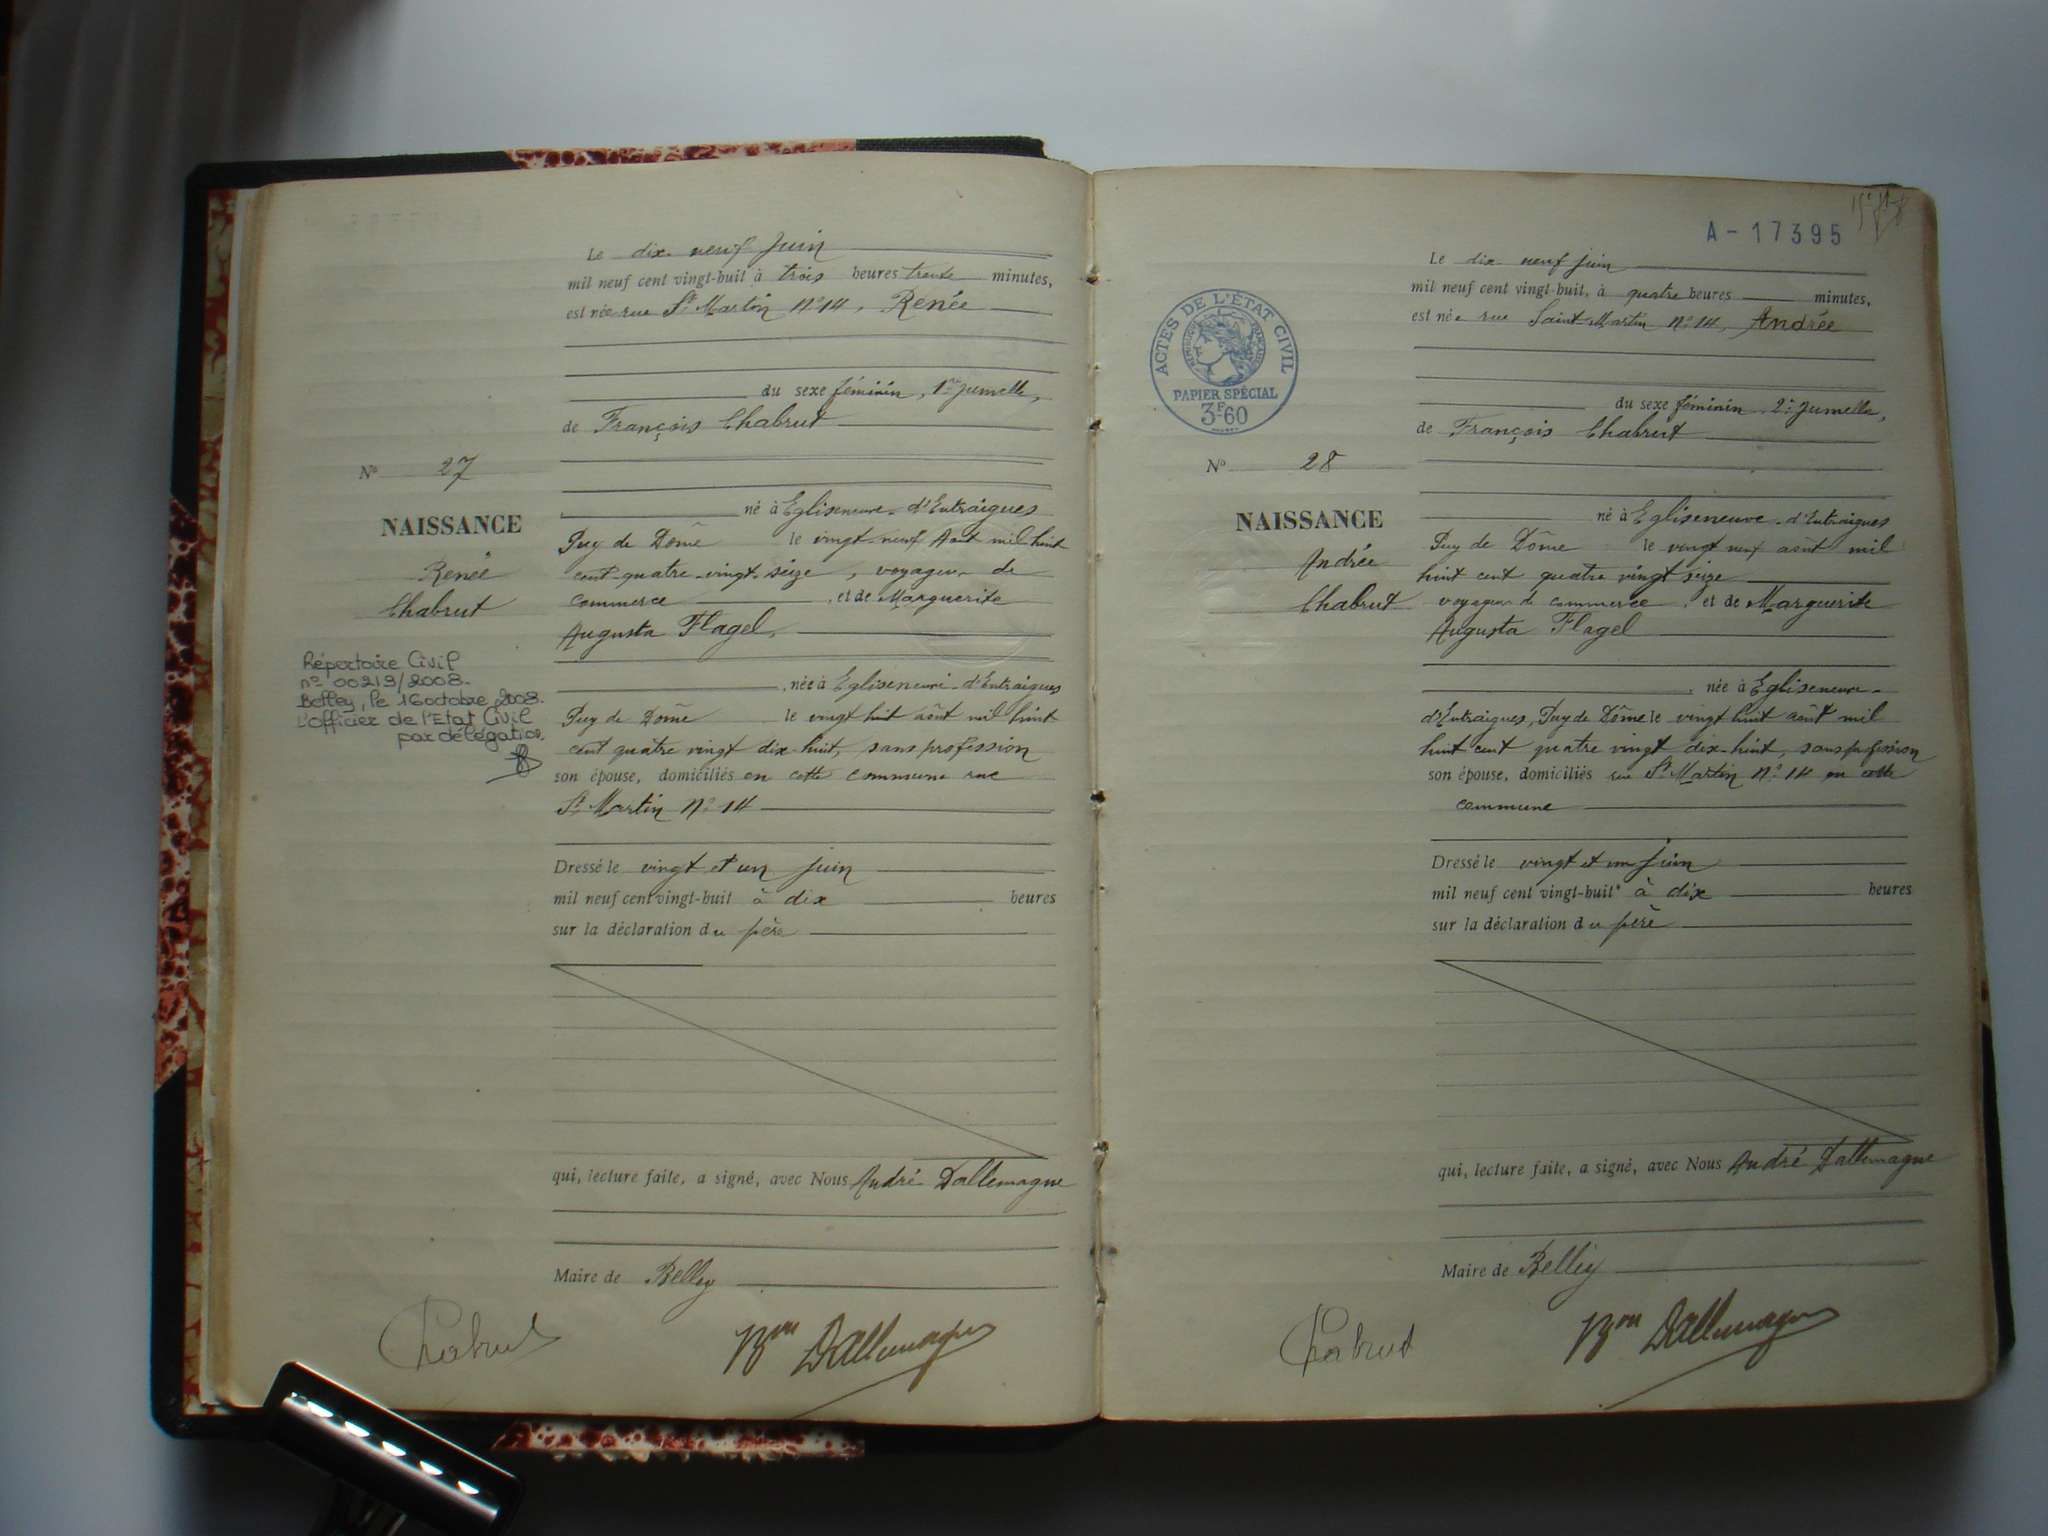 Le dix-neuf Juin
mil neuf cent vingt-huit à trois heures trente minutes,
est née rue St Martin N° 14, Renée
du sexe féminin, 1re Jumelle,
de François Chabrut
N° 27
né à Egliseneuve-d'Entraigues
NAISSANCE
Puy de Dôme le vingt-neuf Août mil huit
Renée
cent-quatre-vingt-seize, voyageur de
Chabrut
commerce, et de Marguerite
Augusta Flagel,
Répertoire Civil
n° 00213/2008.
Belley, le 16 octobre 2008.
L'Officier de l'Etat Civil
par délégation.
, née à Egliseneuve-d'Entraigues
Puy de Dôme le vingt huit août mil huit
cent quatre vingt dix-huit, sans profession
son épouse, domiciliés en cette commune rue
St Martin N° 14
Dressé le vingt et un Juin
mil neuf cent vingt-huit à dix heures
sur la déclaration du père
qui, lecture faite, a signé, avec Nous André Dallemagne
Maire de Belley
Chabrut
Bon Dallemagne
A-17395
Le dix neuf juin
mil neuf cent vingt-huit, à quatre heures minutes,
est née rue Saint Martin N° 14, Andrée
ACTES DE L'ÉTAT CIVIL
RÉPUBLIQUE FRANÇAISE
PAPIER SPÉCIAL
3F60
du sexe féminin, 2e Jumelle,
de François Chabrut
N° 28
né à Egliseneuve-d'Entraigues
NAISSANCE
Puy de Dôme le vingt neuf août mil
Andrée
huit cent quatre vingt seize
Chabrut
voyageur de commerce, et de Marguerite
Augusta Flagel
, née à Egliseneuve-
d'Entraigues, Puy de Dôme le vingt huit août mil
huit cent quatre vingt dix-huit, sans profession
son épouse, domiciliés rue St Martin N° 14 en cette
commune
Dressé le vingt et un Juin
mil neuf cent vingt-huit à dix heures
sur la déclaration du père
qui, lecture faite, a signé, avec Nous André Dallemagne
Maire de Belley
Chabrut
Bon Dallemagne